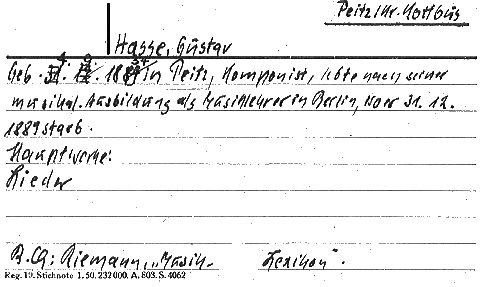 Peitz/Kr. Kottbus
Hasse, Gustav
Geb. 4. 9. 1834 in Peitz, Komponist, lebte nach seiner
musikal. Ausbildung als Musiklehrer in Berlin, wo er 31. 12.
1889 starb.
Hauptwerke:
Lieder
B. Q.: Riemann, „Musik-Lexikon".
Reg. 19. Stichnote 1. 50. 232000. A. 803. S. 4062